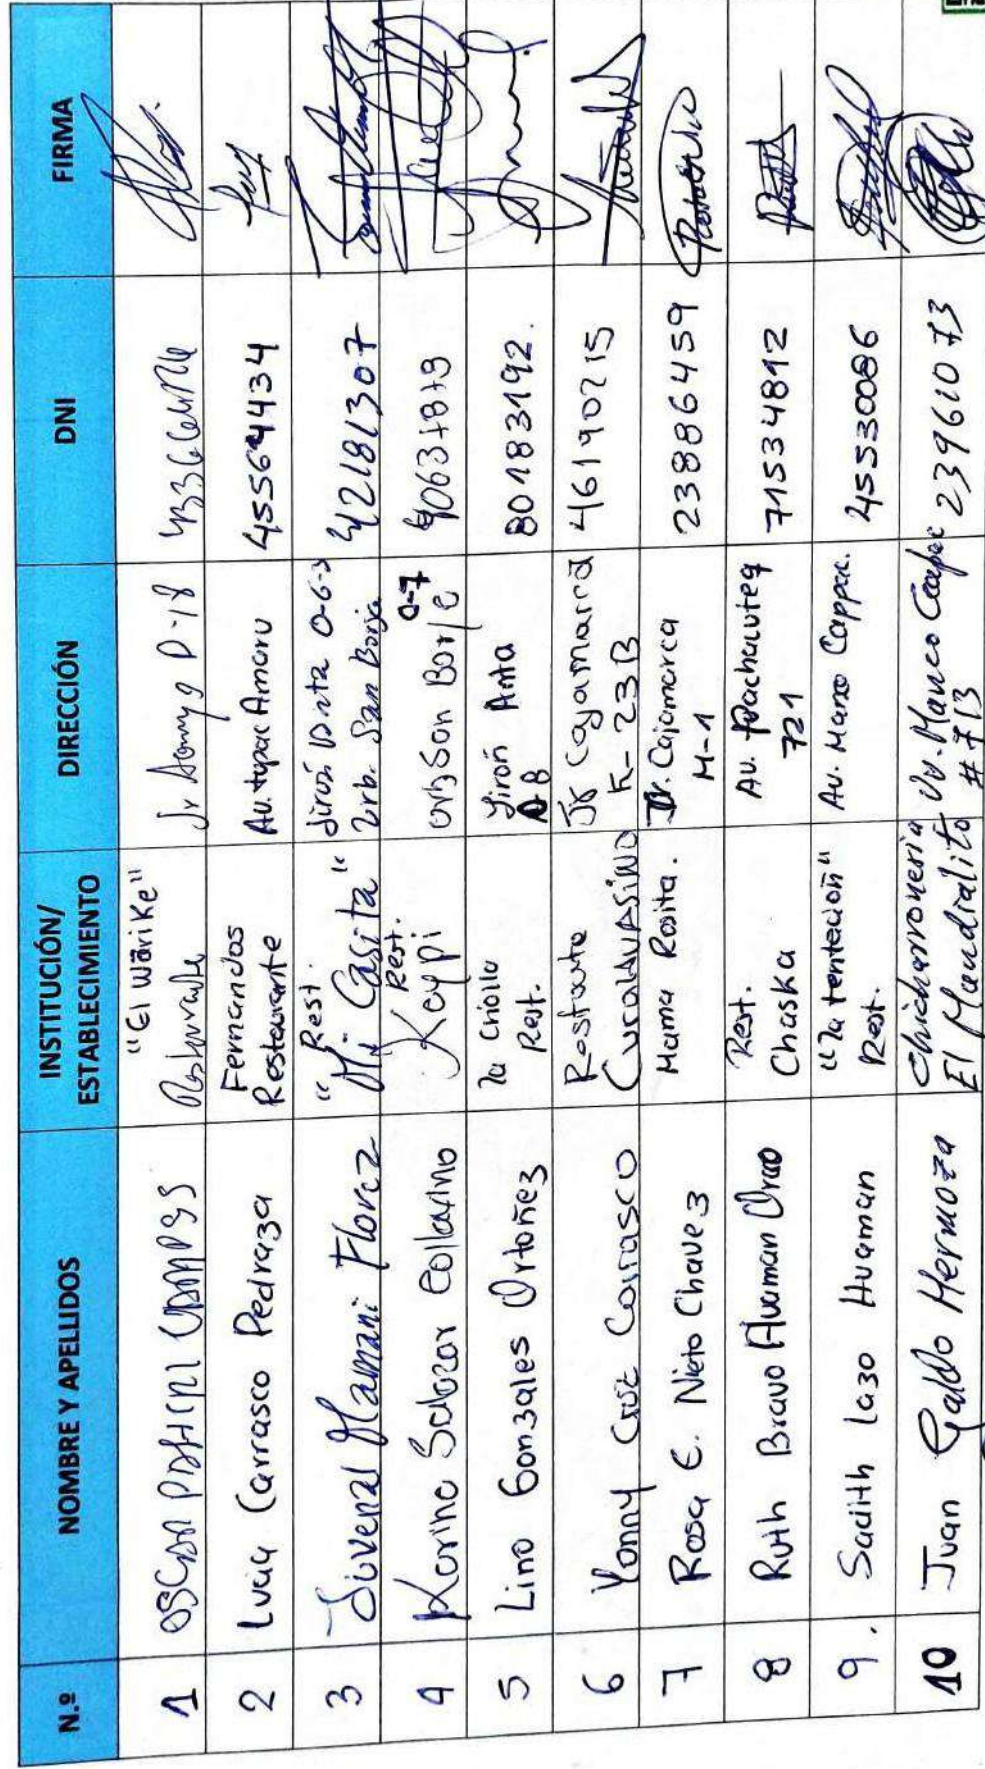 N.º NOMBRE Y APELLIDOS INSTITUCIÓN/ ESTABLECIMIENTO DIRECCIÓN DNI FIRMA
1 OSCAR "El Wàrike" Jr D-18
2 Lucia Carrasco Pedraza Fernandos Restaurante Av. tupac Amaru 45564434
3 Juvenal Mamani Florez Rest. "Mi Casita" Jirón Anta O-6-3 Urb. San Borja 42181307
4 Karina Salazar Collavino Rest. Kaypi urb San Borja O-7 40637879
5 Lino Gonzales Ortoñez la criolla Rest. Jirón Anta A-8 80183192.
6 Yonny Cruz Carrasco K-23B 46190215
7 Rosa E. Nieto Chavez Mama Rosita. Jr. Cajamarca M-1 23886459
8 Ruth Bravo Huaman Rest. Chaska Av. Pachacuteq 721 71534812
9. Sadith Lazo Huaman "La tentación" Rest. Av. Manco Cappac. 45530086
10 Juan Galdo Hermoza Chicharroneria El Mundialito Av. Manco Ccapac #713 23961073